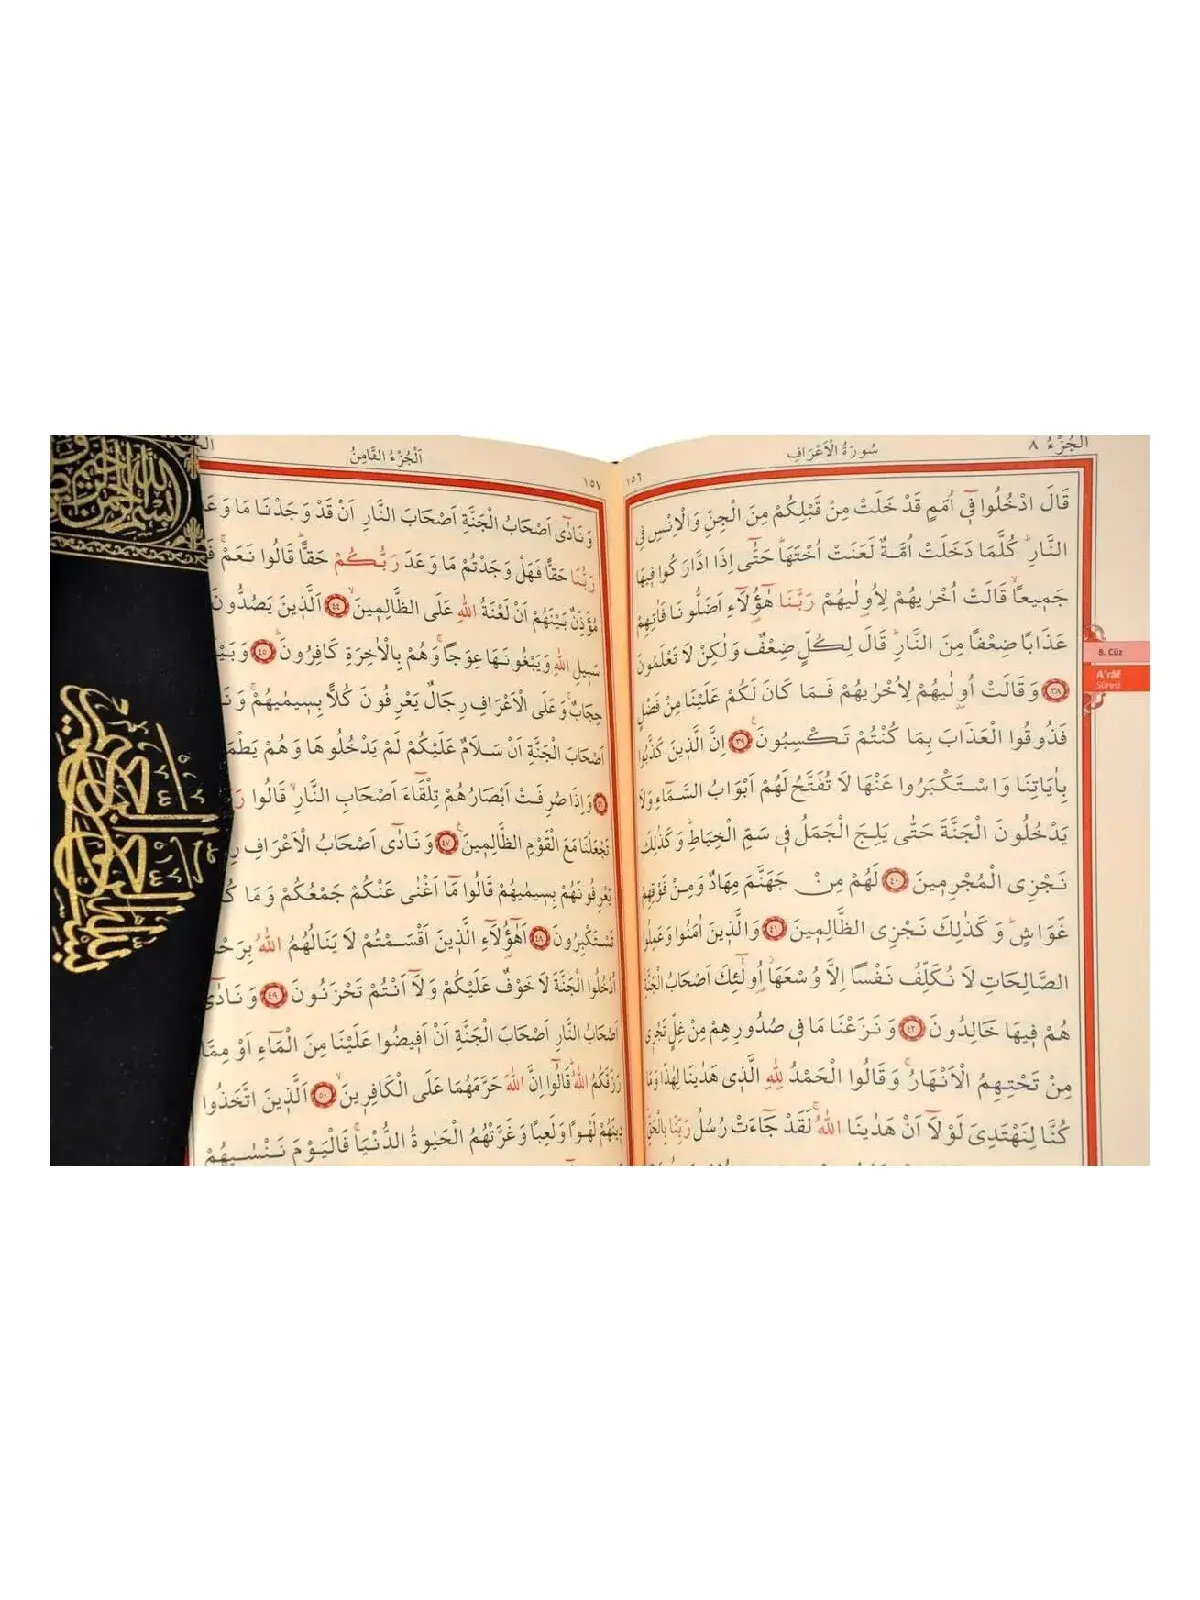 الجزء ٨
سُورَةُ الْاَعْرَافِ
١٥٦
قَالَ ادْخُلُوا فٖٓي اُمَمٍ قَدْ خَلَتْ مِنْ قَبْلِكُمْ مِنَ الْجِنِّ وَالْاِنْسِ فِي
النَّارِؕ كُلَّمَا دَخَلَتْ اُمَّةٌ لَعَنَتْ اُخْتَهَاؕ حَتّٰٓى اِذَا ادَّارَكُوا فٖيهَا
جَمٖيعاًۙ قَالَتْ اُخْرٰيهُمْ لِاُو۫لٰيهُمْ رَبَّنَا هٰٓؤُ۬لَٓاءِ اَضَلُّونَا فَاٰتِهِمْ
عَذَابًا ضِعْفًا مِنَ النَّارِؕ قَالَ لِكُلٍّ ضِعْفٌ وَلٰكِنْ لَا تَعْلَمُونَ
٣٨ وَقَالَتْ اُو۫لٰيهُمْ لِاُخْرٰيهُمْ فَمَا كَانَ لَكُمْ عَلَيْنَا مِنْ فَضْلٍ
فَذُوقُوا الْعَذَابَ بِمَا كُنْتُمْ تَكْسِبُونَ ٣٩ اِنَّ الَّذٖينَ كَذَّبُوا
بِاٰيَاتِنَا وَاسْتَكْبَرُوا عَنْهَا لَا تُفَتَّحُ لَهُمْ اَبْوَابُ السَّمَٓاءِ وَلَا
يَدْخُلُونَ الْجَنَّةَ حَتّٰى يَلِجَ الْجَمَلُ فٖي سَمِّ الْخِيَاطِؕ وَكَذٰلِكَ
نَجْزِي الْمُجْرِمٖينَ ٤٠ لَهُمْ مِنْ جَهَنَّمَ مِهَادٌ وَمِنْ فَوْقِهِمْ
غَوَاشٍؕ وَكَذٰلِكَ نَجْزِي الظَّالِمٖينَ ٤١ وَالَّذٖينَ اٰمَنُوا وَعَمِلُوا
الصَّالِحَاتِ لَا نُكَلِّفُ نَفْسًا اِلَّا وُسْعَهَاۘ اُو۬لٰٓئِكَ اَصْحَابُ الْجَنَّةِ
هُمْ فٖيهَا خَالِدُونَ ٤٢ وَنَزَعْنَا مَا فٖي صُدُورِهِمْ مِنْ غِلٍّ تَجْرٖي
مِنْ تَحْتِهِمُ الْاَنْهَارُۚ وَقَالُوا الْحَمْدُ لِلّٰهِ الَّذٖي هَدٰينَا لِهٰذَا وَمَا
كُنَّا لِنَهْتَدِيَ لَوْلَٓا اَنْ هَدٰينَا اللّٰهُۚ لَقَدْ جَٓاءَتْ رُسُلُ رَبِّنَا بِالْحَقِّ
8. Cüz
A'râf
Sûresi
اَلْجُزْءُ الثَّامِنُ
١٥٧
وَنَادٰٓى اَصْحَابُ الْجَنَّةِ اَصْحَابَ النَّارِ اَنْ قَدْ وَجَدْنَا مَا
رَبُّنَا حَقاًّ فَهَلْ وَجَدْتُمْ مَا وَعَدَ رَبُّكُمْ حَقاًّؕ قَالُوا نَعَمْۚ
مُؤَذِّنٌ بَيْنَهُمْ اَنْ لَعْنَةُ اللّٰهِ عَلَى الظَّالِمٖينَۙ ٤٤ اَلَّذٖينَ يَصُدُّونَ
سَبٖيلِ اللّٰهِ وَيَبْغُونَهَا عِوَجاًۚ وَهُمْ بِالْاٰخِرَةِ كَافِرُونَؕ ٤٥
حِجَابٌۚ وَعَلَى الْاَعْرَافِ رِجَالٌ يَعْرِفُونَ كُلاًّ بِسٖيمٰيهُمْۚ
اَصْحَابَ الْجَنَّةِ اَنْ سَلَامٌ عَلَيْكُمْ لَمْ يَدْخُلُوهَا وَهُمْ
وَاِذَا صُرِفَتْ اَبْصَارُهُمْ تِلْقَٓاءَ اَصْحَابِ النَّارِۙ قَالُوا
تَجْعَلْنَا مَعَ الْقَوْمِ الظَّالِمٖينَ۟ ٤٧ وَنَادٰٓى اَصْحَابُ الْاَعْرَافِ
يَعْرِفُونَهُمْ بِسٖيمٰيهُمْ قَالُوا مَٓا اَغْنٰى عَنْكُمْ جَمْعُكُمْ وَمَا
تَسْتَكْبِرُونَ ٤٨ اَهٰٓؤُ۬لَٓاءِ الَّذٖينَ اَقْسَمْتُمْ لَا يَنَالُهُمُ اللّٰهُ
اُدْخُلُوا الْجَنَّةَ لَا خَوْفٌ عَلَيْكُمْ وَلَٓا اَنْتُمْ تَحْزَنُونَ ٤٩ وَنَادٰٓى
اَصْحَابُ النَّارِ اَصْحَابَ الْجَنَّةِ اَنْ اَفٖيضُوا عَلَيْنَا مِنَ الْمَٓاءِ اَوْ مِمَّا
رَزَقَكُمُ اللّٰهُؕ قَالُٓوا اِنَّ اللّٰهَ حَرَّمَهُمَا عَلَى الْكَافِرٖينَۙ ٥٠ اَلَّذٖينَ اتَّخَذُوا
دٖينَهُمْ لَهْوًا وَلَعِبًا وَغَرَّتْهُمُ الْحَيٰوةُ الدُّنْيَاۚ فَالْيَوْمَ نَنْسٰيهُمْ
بسم الله الرحمن الرحيم